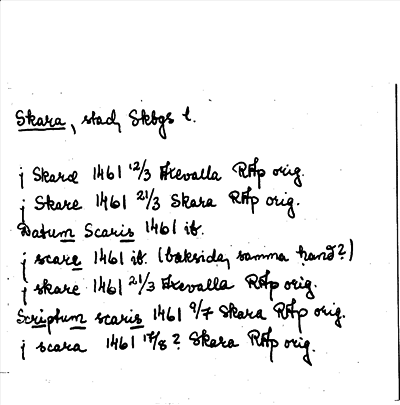 Skara, stad, Skbgs l.
j Skaræ 1461 12/3 Hrevalla RAp orig.
j Skare 1461 21/3 Skara RAp orig.
Datum Scaris 1461 ib.
j scare 1461 ib. (baksida, samma hand?)
j skare 1461 21/3 Hrevalla RAp orig.
Scriptum scaris 1461 9/7 Skara RAp orig.
j scara 1461 17/8? Skara RAp orig.